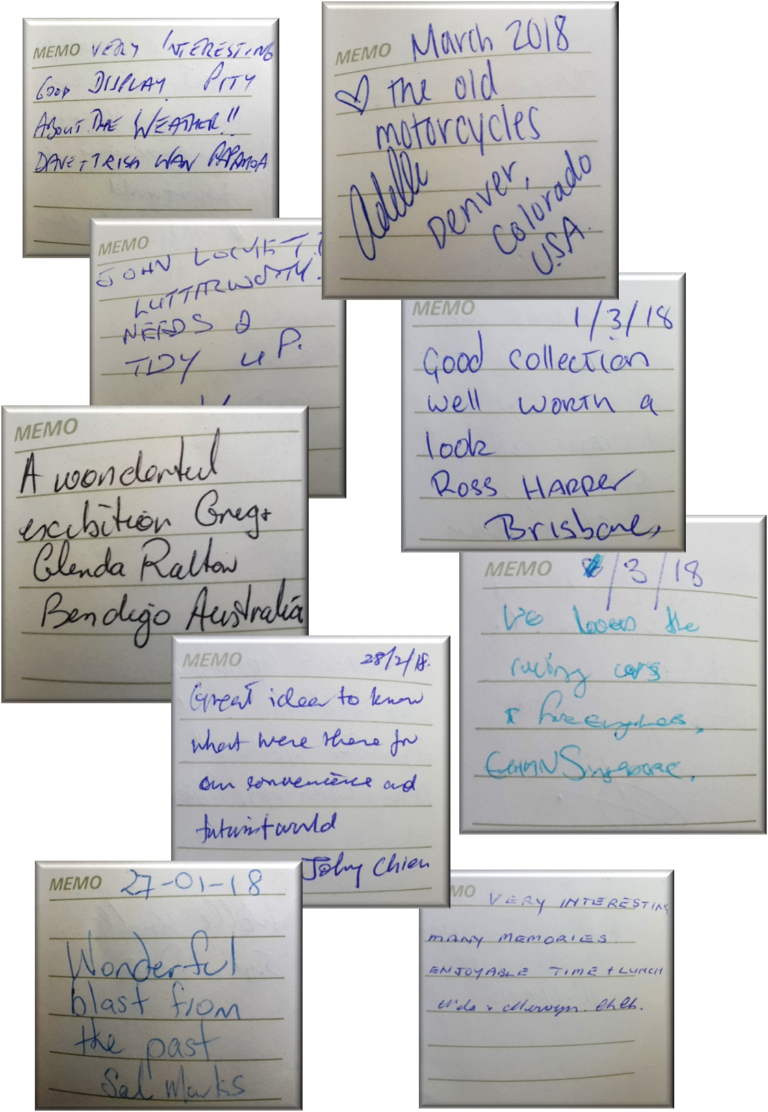 MEMO VERY INTERESTING
GOOD DISPLAY PITY
ABOUT THE WEATHER!!
DAVE + TRISH WAN PAPAMOA
MEMO March 2018
♡ the old
motorcycles
Adelle
Denver,
Colorado
USA.
MEMO
JOHN
LUTTERWORTH.
NEEDS a
TIDY UP.
MEMO
1/3/18
Good collection
well worth a
look
ROSS HARPER
Brisbane,
MEMO
A wonderful
excibition Greg +
Glenda Ralton
Bendigo Australia
MEMO /3/18
We loved the
racing cars
& fire engines,
Singapore.
MEMO 28/2/18.
Great idea to know
what were there for
our convenience and
futurist world
Chien
MEMO 27-01-18
Wonderful
blast from
the past
Sal Marks
MO VERY INTERESTING
MANY MEMORIES
ENJOYABLE TIME + LUNCH